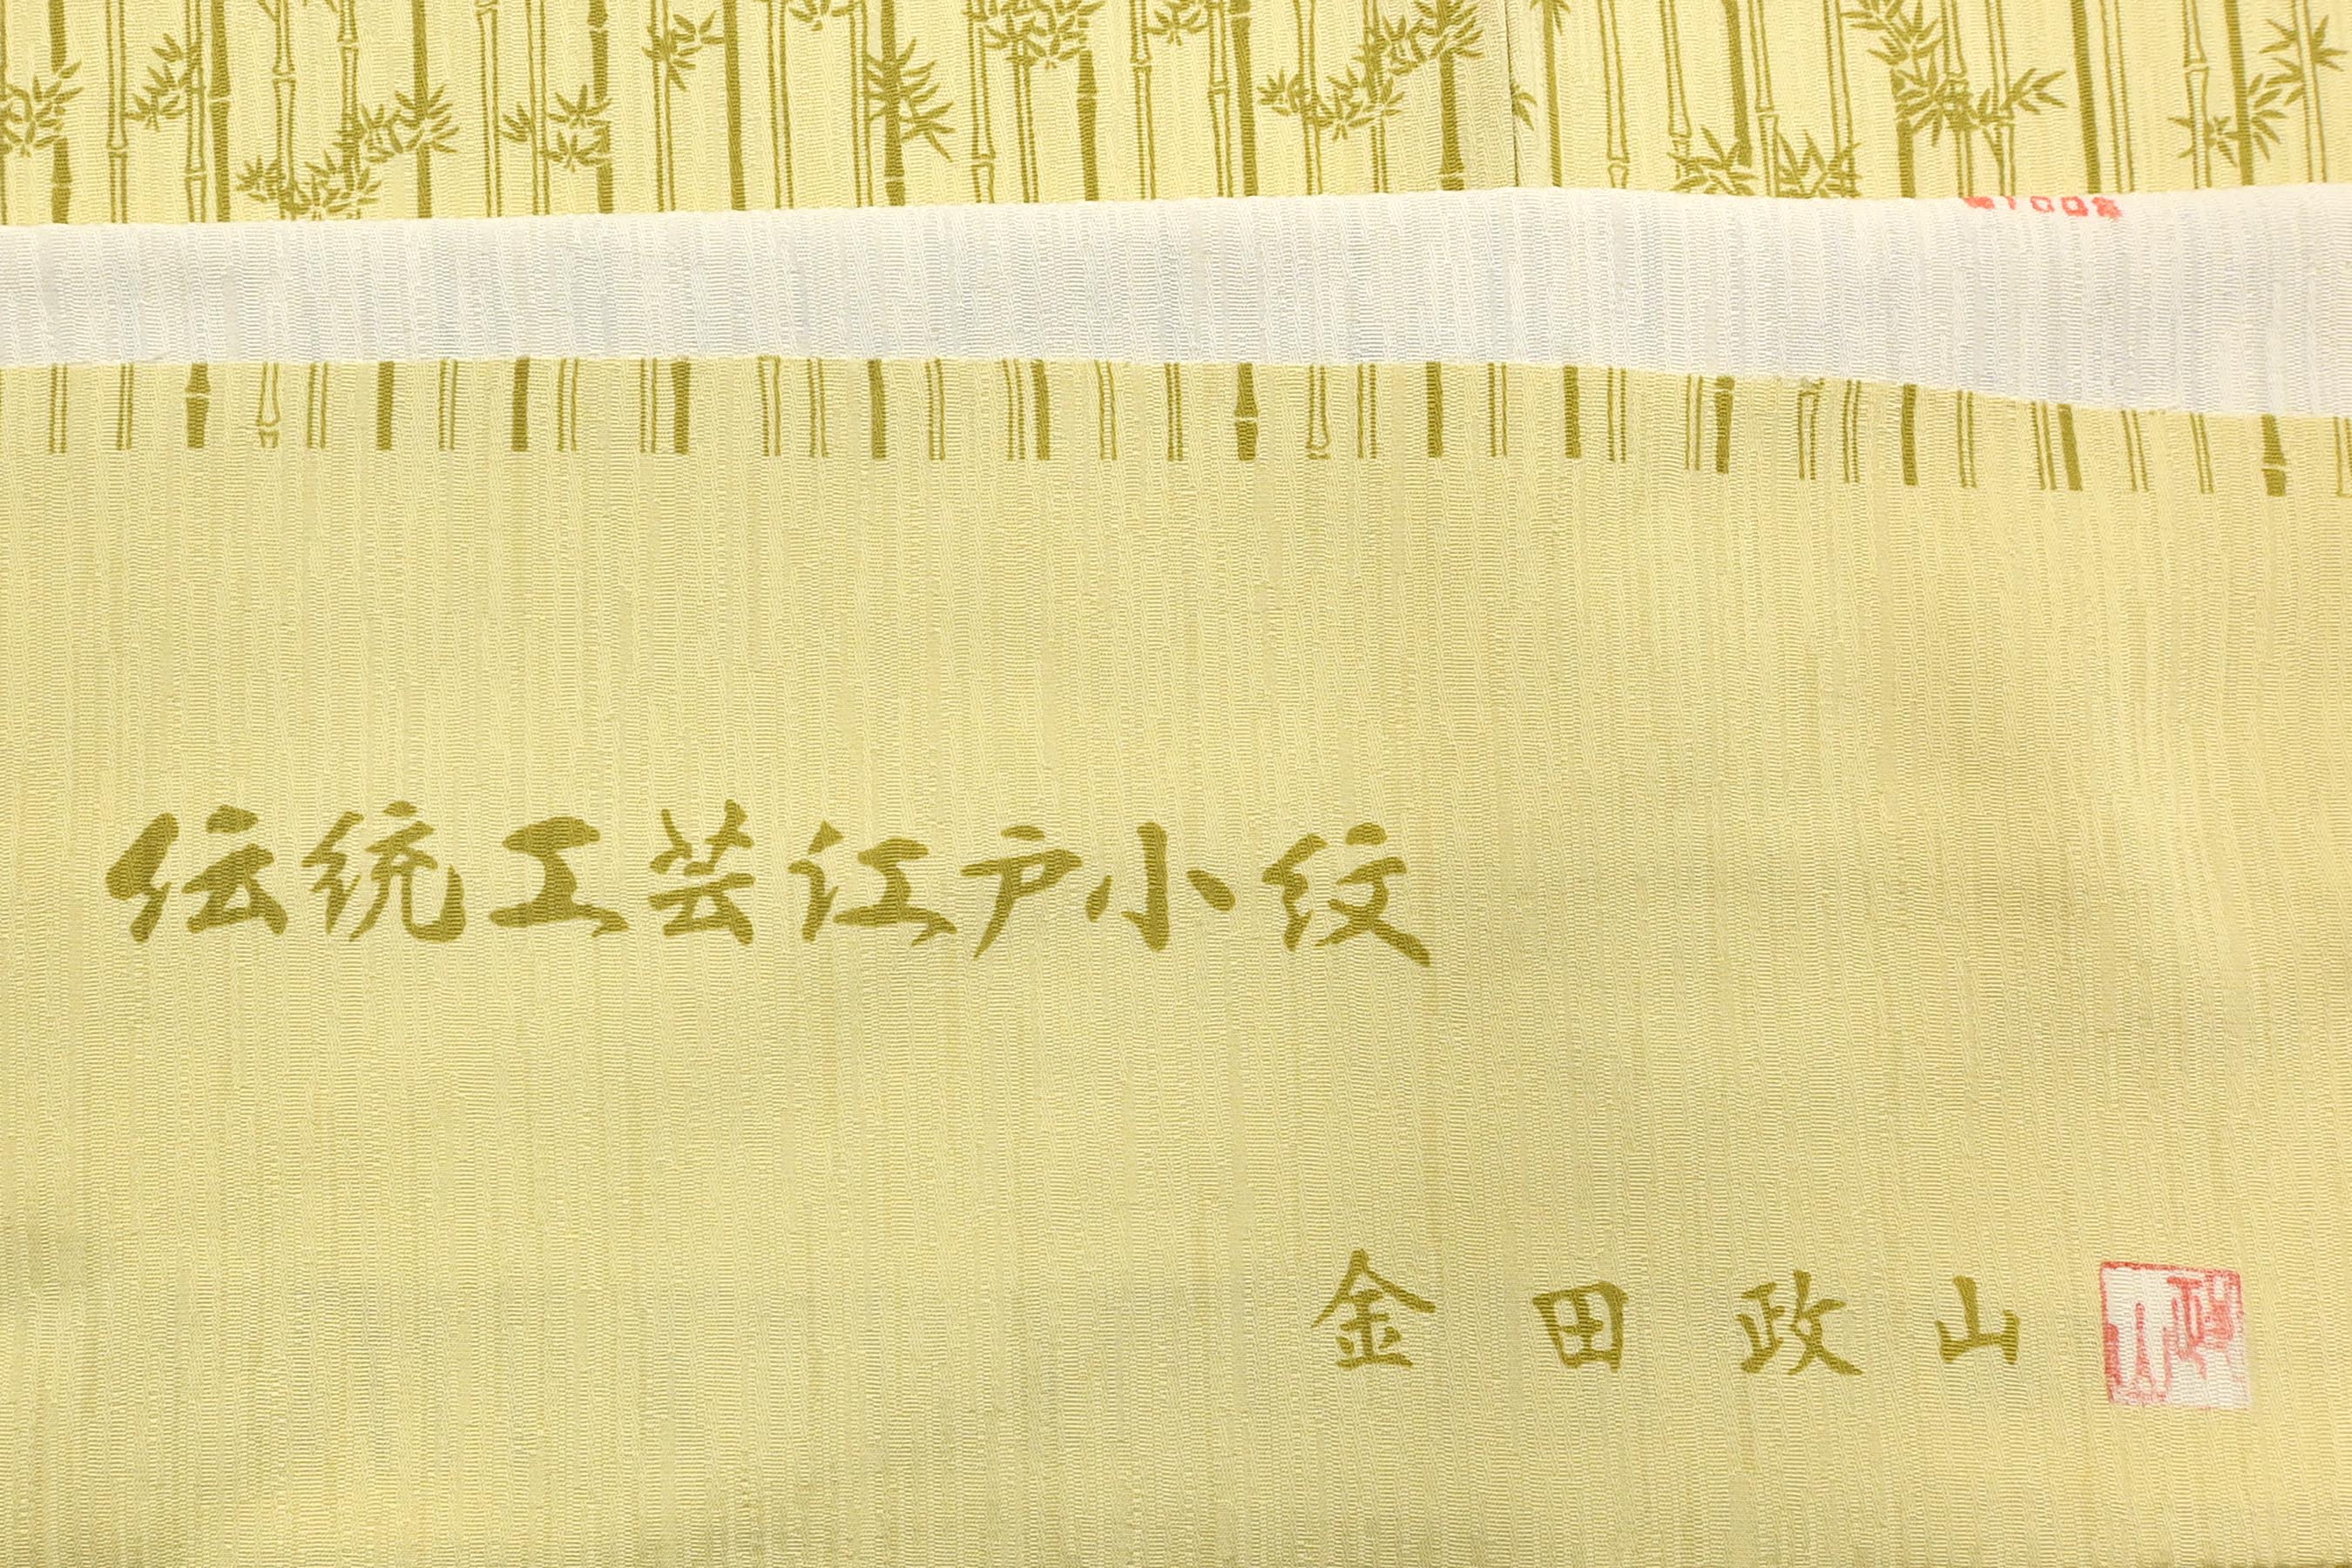 伝統工芸江戸小紋
金田政山
政山